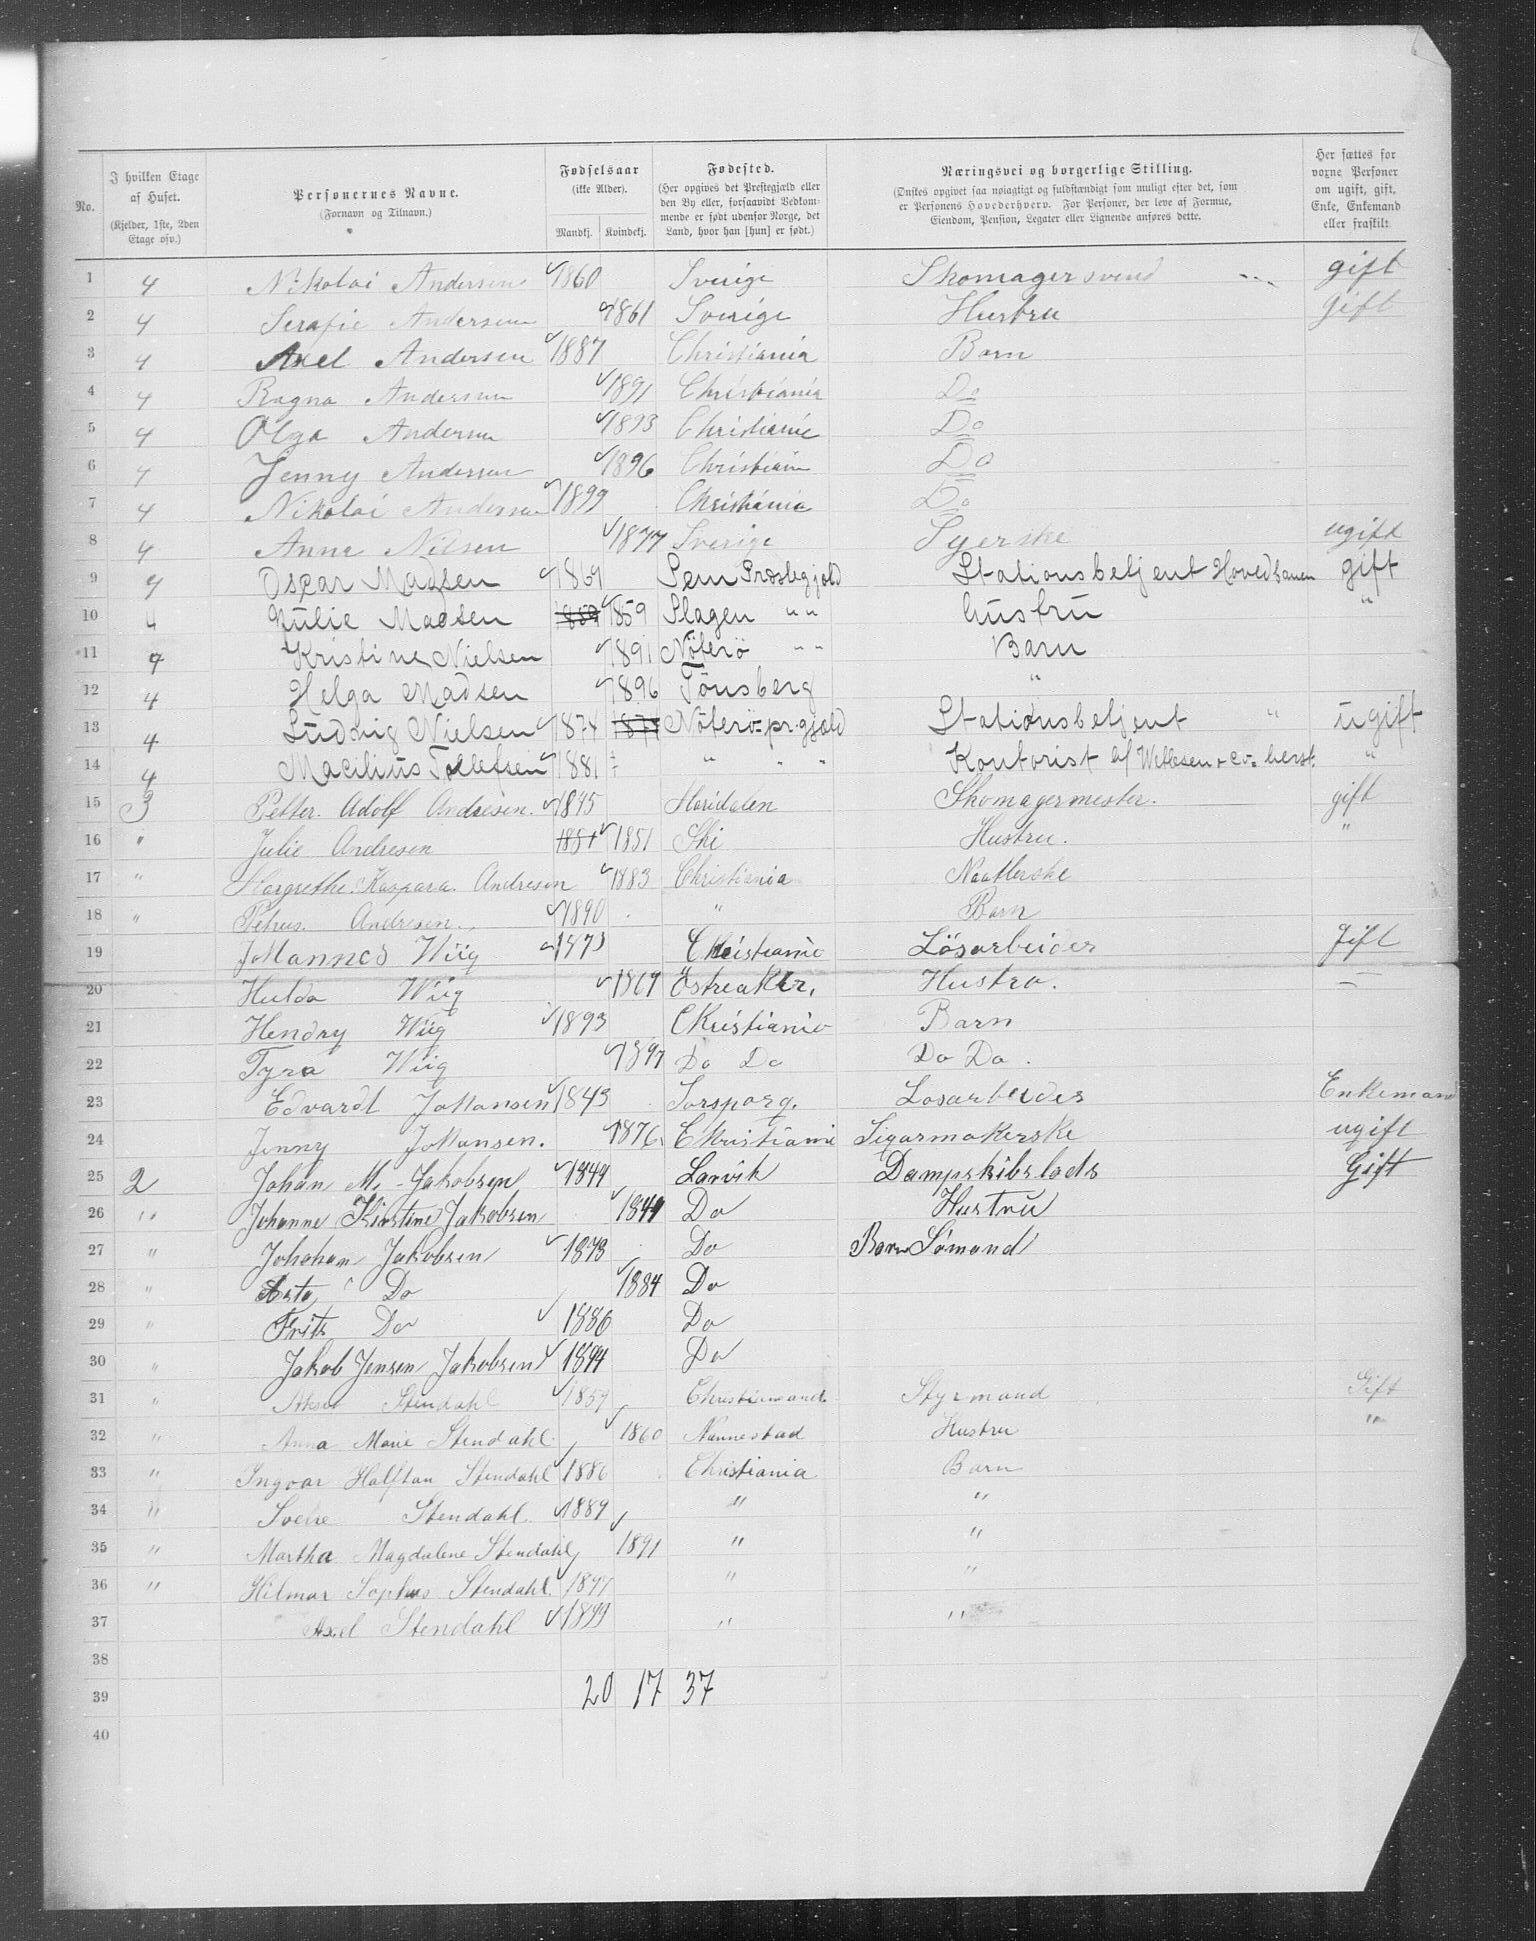 No. | I hvilken Etage af Huset. (Kjelder, 1ste, 2den Etage osv.) | Personernes Navne. (Fornavn og Tilnavn.) | Fødselsaar (ikke Alder). Mandkj. Kvindekj. | Fødested. (Her opgives det Prestegjæld eller den By eller, forsaavidt Vedkommende er født udenfor Norge, det Land, hvor han [hun] er født.) | Næringsvei og borgerlige Stilling. (Ønskes opgivet saa nøiagtigt og fuldstændigt som muligt efter det, som er Personens Hovederhverv. For Personer, der leve af Formue, Eiendom, Pension, Legater eller Lignende anføres dette. | Her sættes for voxne Personer om ugift, gift, Enke, Enkemand eller fraskilt.
1 4 Nikolai Andersen 1860 Sverige Skomagersvend gift
2 4 Serafie Andersen 1861 Sverige Hustru Gift
3 4 Axel Andersen 1887 Christiania Barn
4 4 Ragna Andersen 1891 Christiania Do
5 4 Olga Andersen 1893 Christianie Do
6 4 Jenny Andersen 1896 Christiania Do
7 4 Nikolai Andersen 1899 Christiania Do
8 4 Anna Nilsen 1877 Sverige Syerske ugift
9 4 Oscar Madsen 1869 Sem Præstegjæld Stationsbetjent Hovedbanen gift
10 4 Julie Madsen 1859 1859 Slagen " " Hustru "
11 4 Kristine Nielsen 1891 Nöterö " " Barn
12 4 Helga Madsen 1896 Tönsberg "
13 4 Ludvig Nielsen 1874 1874 Nöterö pr.gjæld Stationsbetjent " ugift
14 4 Tollefsen 1881 " " " Kontorist "
15 3 Petter Adolf Andresen. 1845 Maridalen Skomagermester. gift
16 " Julie Andresen 1851 1851 Ski Hustru. "
17 " Margrethe Kaspara Andresen 1883 Christiania Naatlerske
18 " Petrus Andresen 1890 " Barn
19 Johannes Wiig 1873 Christianie Lösarbeider Gift
20 Hulda Wiig 1869 Östreaker. Hustro. "
21 Hendry Wiig 1893 Christianie Barn
22 Tyra Wiig 1897 Do Do Do Do.
23 Edvardt Johansen 1843 Sarsporg. Losarbeider Enkemand
24 Jenny Johansen. 1876. Christiania Sigarmakerske ugift
25 2 Johan M. Jakobsen 1849 Larvik Dampskibslods Gift
26 " Johanne Kirstine Jakobsen 1849 Do Hustru
27 " Johahan Jakobsen 1878 Do Barn Sömand
28 " Asta Do 1884 Do
29 " Frits Do 1886 Do
30 " Jakob Jensen Jakobsen 1894 Do
31 " Stendahl 1859 Christiansand Styrmand Gift
32 " Anna Marie Stendahl 1860 Nannestad Hustru "
33 " Ingvar Halftan Stendahl 1886 Christiania Barn
34 " Sverre Stendahl 1889 " "
35 " Martha Magdalene Stendahl 1891 " "
36 " Hilmar Sophus Stendahl 1897 " "
37 Axel Stendahl 1899 " "
38
39 20 17 37
40